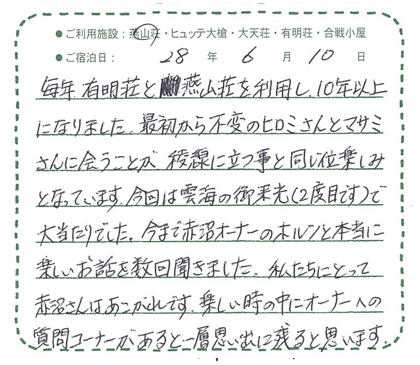 ●ご利用施設：燕山荘・ヒュッテ大槍・大天荘・有明荘・合戦小屋
●ご宿泊日： 28 年 6 月 10 日
毎年 有明荘と燕山荘を利用し、10年以上
になりました。最初から不変のヒロミさんとマサミ
さんに会うことが 稜線に立つ事と同じ位楽しみ
となっています。今回は雲海の御来光(2度目です)で
大当たりでした。今まで赤沼オーナーのホルンと本当に
楽しいお話を数回聞きました。私たちにとって
赤沼さんはあこがれです。楽しい時の中にオーナーへの
質問コーナーがあると一層思い出に残ると思います。